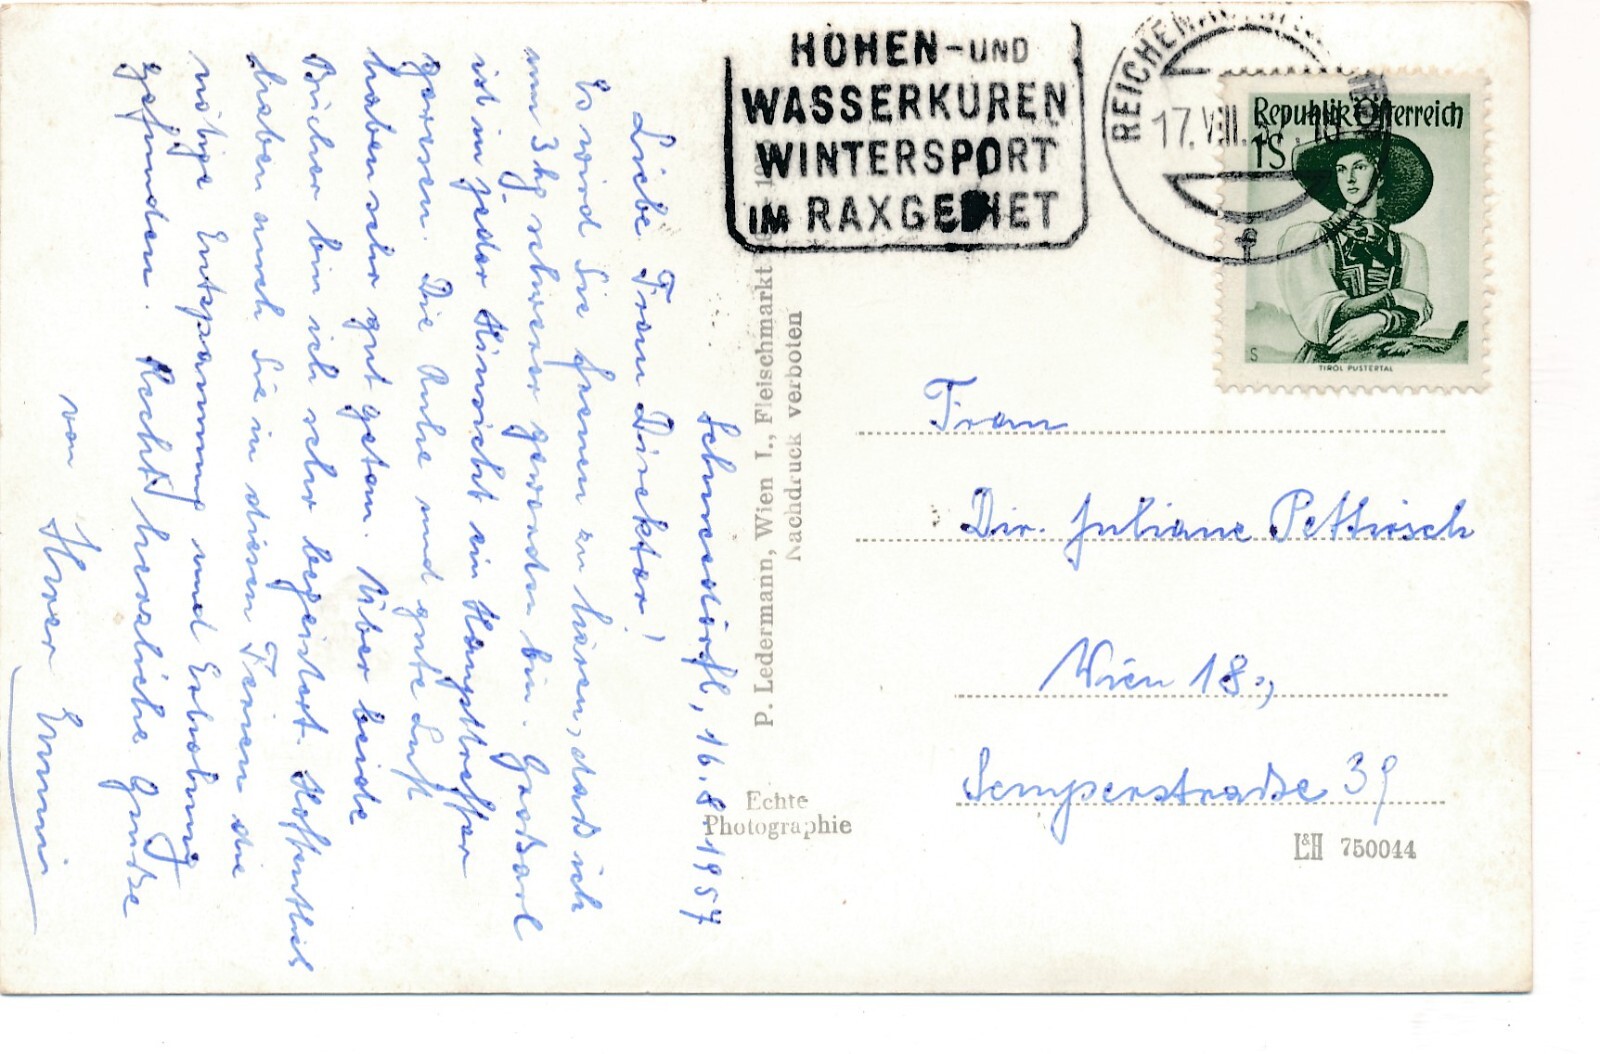 Schneedörfl, 16.8.1957
Liebe Frau Direktor!
Es wird Sie freuen zu hören, daß ich
um 3 kg schwerer geworden bin. Großarl
ist in jeder Hinsicht ein Haupttreffer
gewesen. Die Ruhe und gute Luft
haben sehr gut getan. Über beide
Bücher bin ich sehr begeistert. Hoffentlich
haben auch Sie in diesen Ferien die
nötige Entspannung und Erholung
gefunden. Recht herzliche Grüße
von Ihrer Emmi
P. Ledermann, Wien I., Fleischmarkt
Nachdruck verboten
Echte
Photographie
HÖHEN-UND
WASSERKUREN
WINTERSPORT
IM RAXGEBIET
REICHENAU
17. VIII. 57
Republik Österreich
1S
S
TIROL PUSTERTAL
Frau
Dir. Juliane Pettirsch
Wien 18.,
Semperstraße 39
L&H 750044